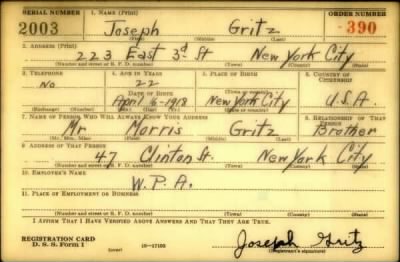 SERIAL NUMBER 1. NAME (Print) ORDER NUMBER
2003 Joseph Gritz 390
(First) (Middle) (Last)
2. ADDRESS (Print)
223 East 3d St New York City
(Number and street or R. F. D. number) (Town) (County) (State)
3. TELEPHONE 4. AGE IN YEARS 5. PLACE OF BIRTH 6. COUNTRY OF CITIZENSHIP
No 22
DATE OF BIRTH
April 6-1918 New York City U.S.A.
(Exchange) (Number) (Mo.) (Day) (Yr.) (State or country)
7. NAME OF PERSON WHO WILL ALWAYS KNOW YOUR ADDRESS 8. RELATIONSHIP OF THAT PERSON
Mr Morris Gritz Brother
(Mr., Mrs., Miss) (First) (Middle) (Last)
9. ADDRESS OF THAT PERSON
47 Clinton St. New York City
(Number and street or R. F. D. number) (Town) (County) (State)
10. EMPLOYER'S NAME
W.P.A.
11. PLACE OF EMPLOYMENT OR BUSINESS
(Number and street or R. F. D. number) (Town) (County) (State)
I AFFIRM THAT I HAVE VERIFIED ABOVE ANSWERS AND THAT THEY ARE TRUE.
REGISTRATION CARD
D. S. S. Form 1 (over) 16-17105 Joseph Gritz
(Registrant's signature)